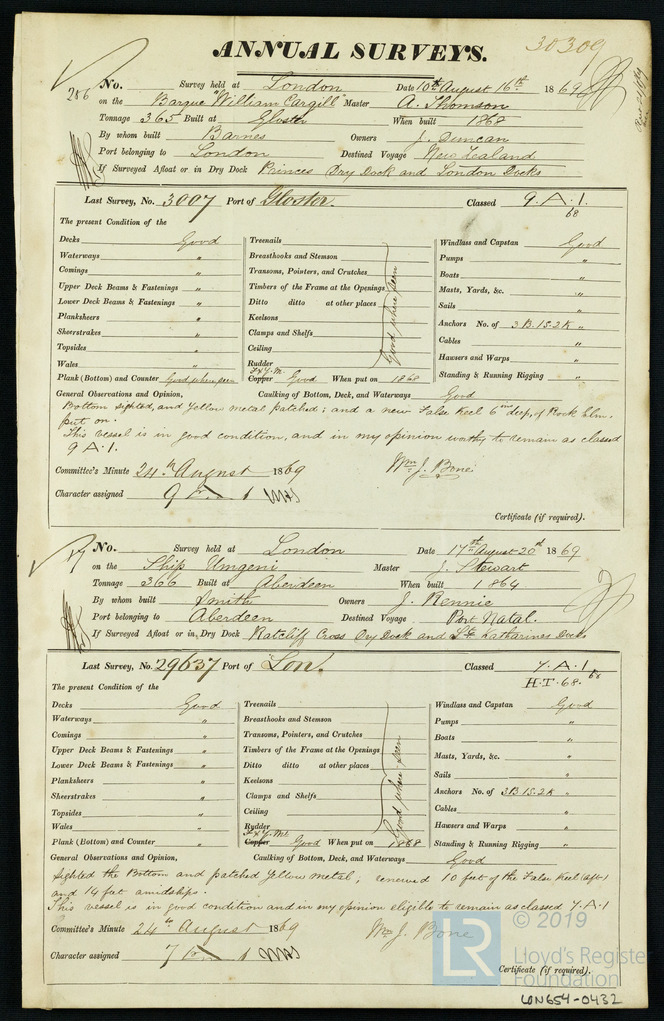 ANNUAL SURVEYS.
30309
286
No. Survey held at London Date 10th August 16th 1869
on the Barque "William Cargill" Master A. Thomson
Tonnage 365 Built at Gloster When built 1868
By whom built Barnes Owners J. Duncan
Port belonging to London Destined Voyage New Zealand
If Surveyed Afloat or in Dry Dock Princes Dry Dock and London Docks
Last Survey, No. 3007 Port of Gloster. Classed 9.A.1.
68
The present Condition of the
Decks Good
Waterways "
Comings "
Upper Deck Beams & Fastenings "
Lower Deck Beams & Fastenings "
Planksheers "
Sheerstrakes "
Topsides "
Wales "
Plank (Bottom) and Counter Good where seen
Treenails
Breasthooks and Stemson
Transoms, Pointers, and Crutches
Timbers of the Frame at the Openings
Ditto ditto at other places
Keelsons
Clamps and Shelfs
Ceiling
Rudder
Good where seen
F & Y.M.
Copper Good When put on 1868
Windlass and Capstan Good
Pumps "
Boats "
Masts, Yards, &c. "
Sails "
Anchors No. of 3B.1S.2K "
Cables "
Hawsers and Warps "
Standing & Running Rigging "
General Observations and Opinion, Caulking of Bottom, Deck, and Waterways Good
Bottom sighted, and Yellow metal patched; and a new False Keel 6 ins deep, of Rock Elm.
put on.
This vessel is in good condition, and in my opinion worthy to remain as classed
9 A.1.
Committee's Minute 24th August 1869
Wm J. Bone
Character assigned 9 1
Certificate (if required).
17
No. Survey held at London Date 17th August 20th 1869
on the Ship Umgeni Master J. Stewart
Tonnage 366 Built at Aberdeen When built 1864
By whom built Smith Owners J. Rennie
Port belonging to Aberdeen Destined Voyage Port Natal.
If Surveyed Afloat or in Dry Dock Ratcliff Cross Dry Dock and St. Katharines Docks
Last Survey, No. 29637 Port of Lon. Classed 7.A.1
68
H.T. 68.
The present Condition of the
Decks Good
Waterways "
Comings "
Upper Deck Beams & Fastenings "
Lower Deck Beams & Fastenings "
Planksheers "
Sheerstrakes "
Topsides "
Wales "
Plank (Bottom) and Counter "
Treenails
Breasthooks and Stemson
Transoms, Pointers, and Crutches
Timbers of the Frame at the Openings
Ditto ditto at other places
Keelsons
Clamps and Shelfs
Ceiling
Rudder
Good where seen
F & Y. Ml
Copper Good When put on 1868
Windlass and Capstan Good
Pumps "
Boats "
Masts, Yards, &c. "
Sails "
Anchors No. of 3B.1S.2K "
Cables "
Hawsers and Warps "
Standing & Running Rigging "
General Observations and Opinion, Caulking of Bottom, Deck, and Waterways Good
Sighted the Bottom and patched Yellow metal; renewed 10 feet of the False Keel (aft)
and 14 feet amidships.
This vessel is in good condition and in my opinion eligible to remain as classed 7.A.1
Committee's Minute 24th August 1869
Wm J. Bone
Character assigned 7 1
Certificate (if required).
LR
© 2019
Lloyd's Register
Foundation
LON654-0432